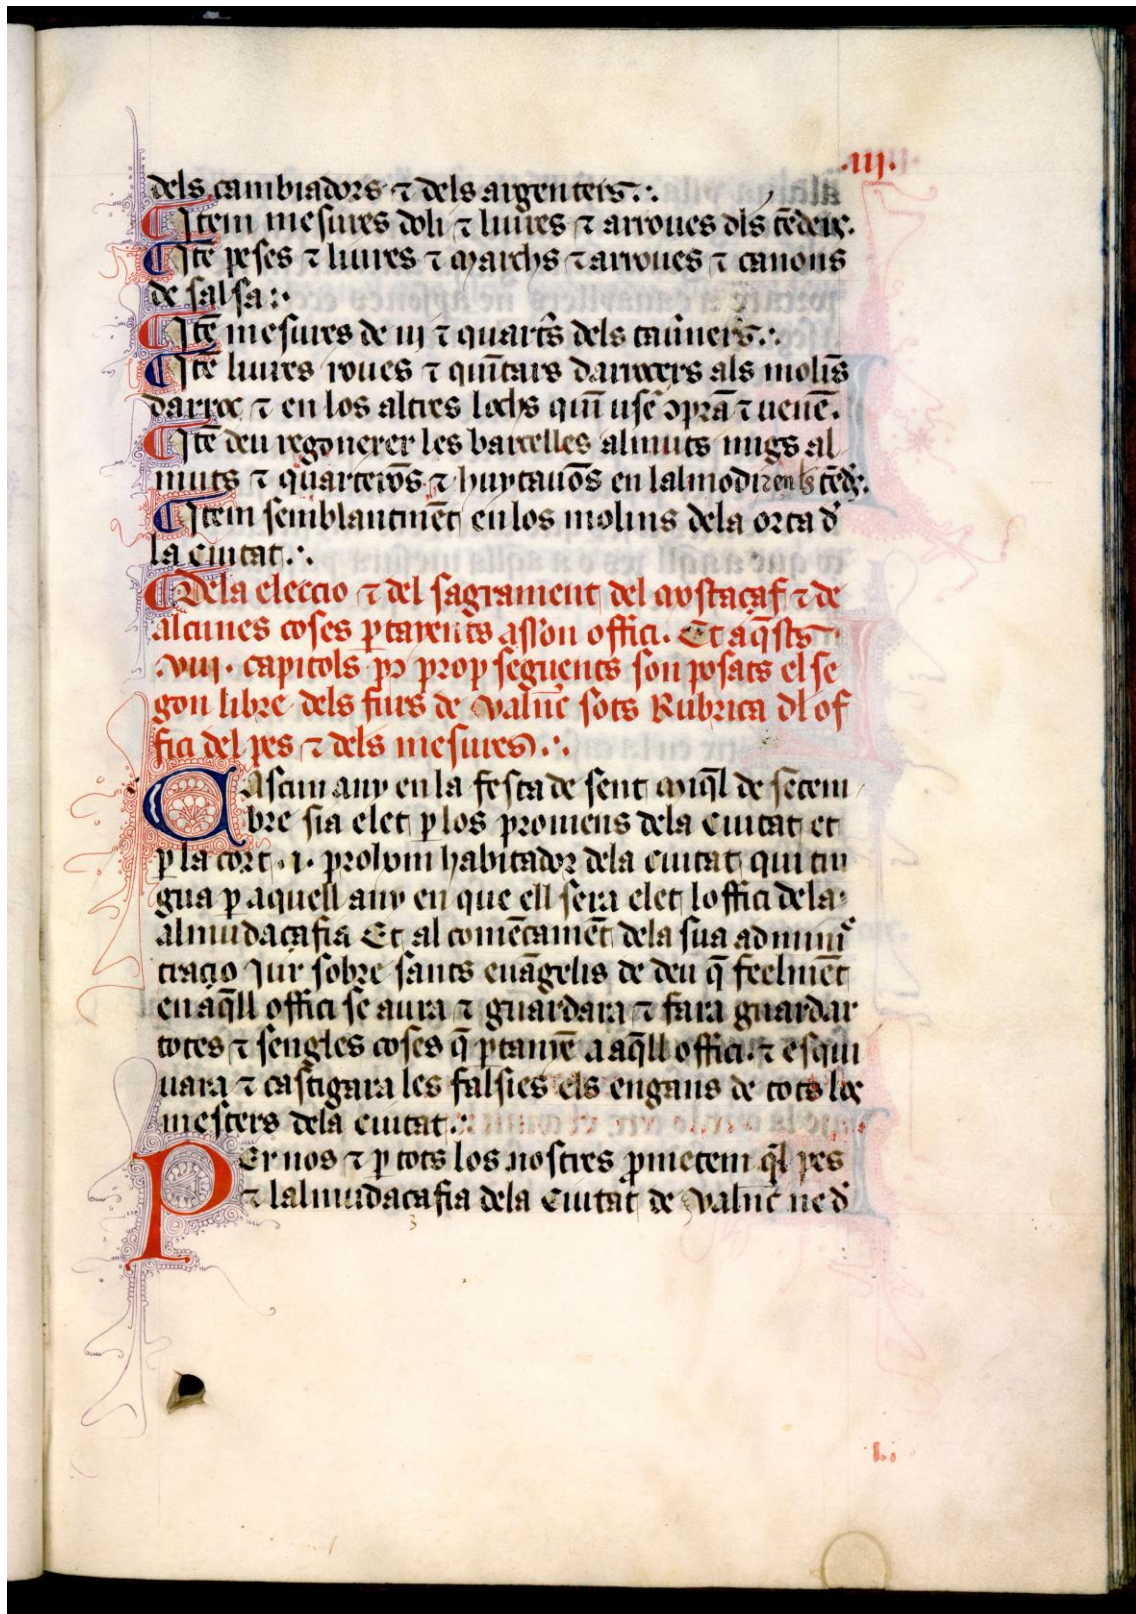 .iij.
dels cambiadors ⁊ dels argenters.
¶ Item mesures doli ⁊ liures ⁊ arroues dls tēders.
¶ Itē peses ⁊ liures ⁊ marchs ⁊ arroues ⁊ canons
de salsa:
¶ Itē mesures de iij ⁊ quarts dels tau̅ners.
¶ Itē liures roues ⁊ quītars darrocers als molīs
darroç ⁊ en los altres lochs quīn usē ↄprā ⁊ uenē.
¶ Itē deu regonexer les barcelles almuts migs al
muts ⁊ quarterōs ⁊ huytauōs en lalmodi ⁊ en ls tēdes.
¶ Item semblantmēt en los molins dela orta d̄
la ciutat.
¶ Dela eleccio ⁊ del sagrament del mostaçaf ⁊ de
alcunes coses ꝑtanents asson offici. Et aq̄sts
.viij. capitols pⁱ prop seguents son posats el se
gon libre dels furs de valn̄c sots Rubrica dl of
fici del pes ⁊ dels mesures.
CAscun any en la festa de sent miq̄l de setem
bre sia elet ꝑ los promens dela Ciutat et
ꝑ la cort .i. prohom habitador dela ciutat qui tin
gua ꝑ aquell any en que ell sera elet loffici dela
almudaçafia Et al comēçamēt dela sua adminiſ
tracio Jur sobre sants euāgelis de deu q̄ feelmēt
en aq̄ll offici se aura ⁊ guardara ⁊ fara guardar
totes ⁊ sengles coses q̄ ꝑtanyē a aq̄ll offici. ⁊ esqui
uara ⁊ castigara les falsies els engans de tots los
mesters dela ciutat.
PEr nos ⁊ ꝑ tots los nostres ꝓmetem q̄l pes
⁊ lalmudaçafia dela Ciutat de valn̄c ne d̄